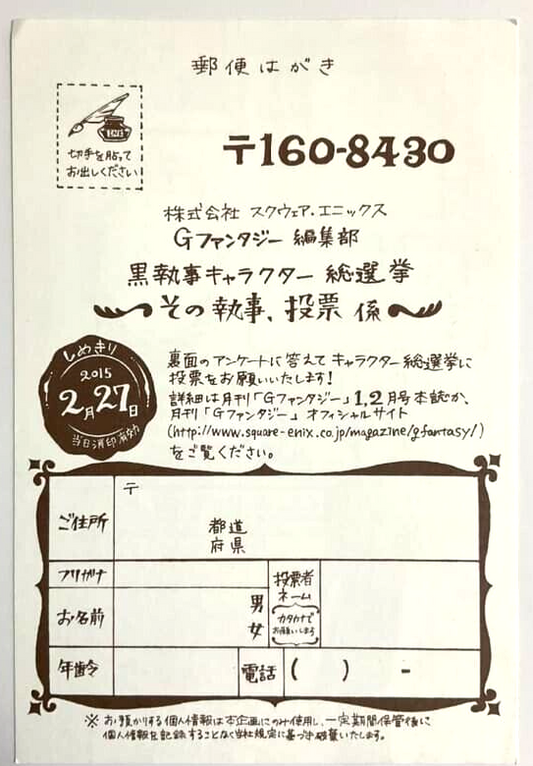 郵便はがき
INK
切手を貼って
お出しください
〒160-8430
株式会社 スクウェア・エニックス
Gファンタジー 編集部
黒執事キャラクター 総選挙
その執事、投票 係
しめきり
2015
2月27日
当日消印有効
裏面のアンケートに答えてキャラクター総選挙に
投票をお願いいたします!
詳細は月刊「Gファンタジー」1,2月号本誌か、
月刊「Gファンタジー」オフィシャルサイト
(http://www.square-enix.co.jp/magazine/gfantasy/)
をご覧ください。
ご住所
〒
都道
府県
フリガナ
お名前
男
女
投票者
ネーム
カタカナで
お願いします
年齢
電話
( ) -
※お預かりする個人情報は本企画にのみ使用し、一定期間保管後に
個人情報を記録することなく当社規定に基づき破棄いたします。